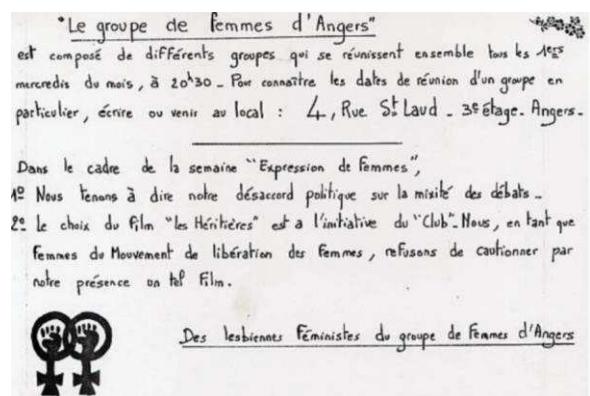 "Le groupe de femmes d'Angers"
est composé de différents groupes qui se réunissent ensemble tous les 1ers
mercredis du mois, à 20h30 _ Pour connaître les dates de réunion d'un groupe en
particulier, écrire ou venir au local : 4, Rue St Laud _ 3e étage. Angers.
Dans le cadre de la semaine "Expression de femmes",
1º Nous tenons à dire notre désaccord politique sur la mixité des débats _
2º le choix du film "les Héritières" est a l'initiative du "Club". Nous, en tant que
femmes du Mouvement de libération des femmes, refusons de cautionner par
notre présence un tel film.
Des lesbiennes féministes du groupe de femmes d'Angers